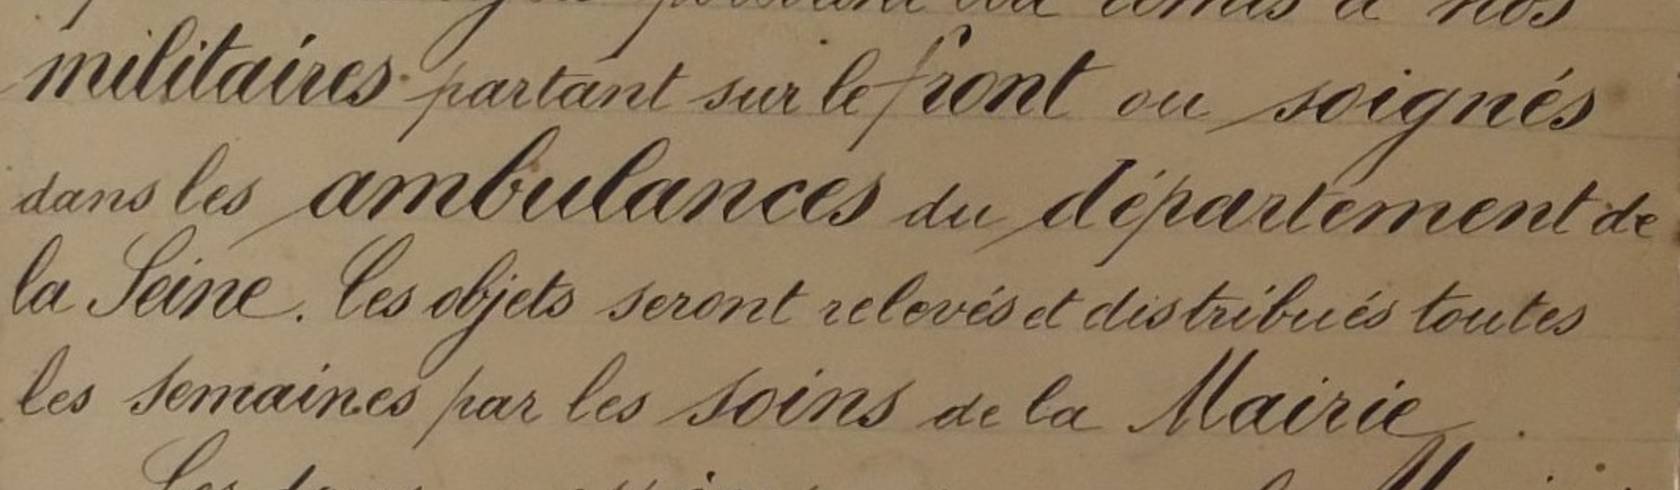 à nos
militaires partant sur le front ou soignés
dans les ambulances du département de
la Seine. Ces objets seront relevés et distribués toutes
les semaines par les soins de la Mairie.